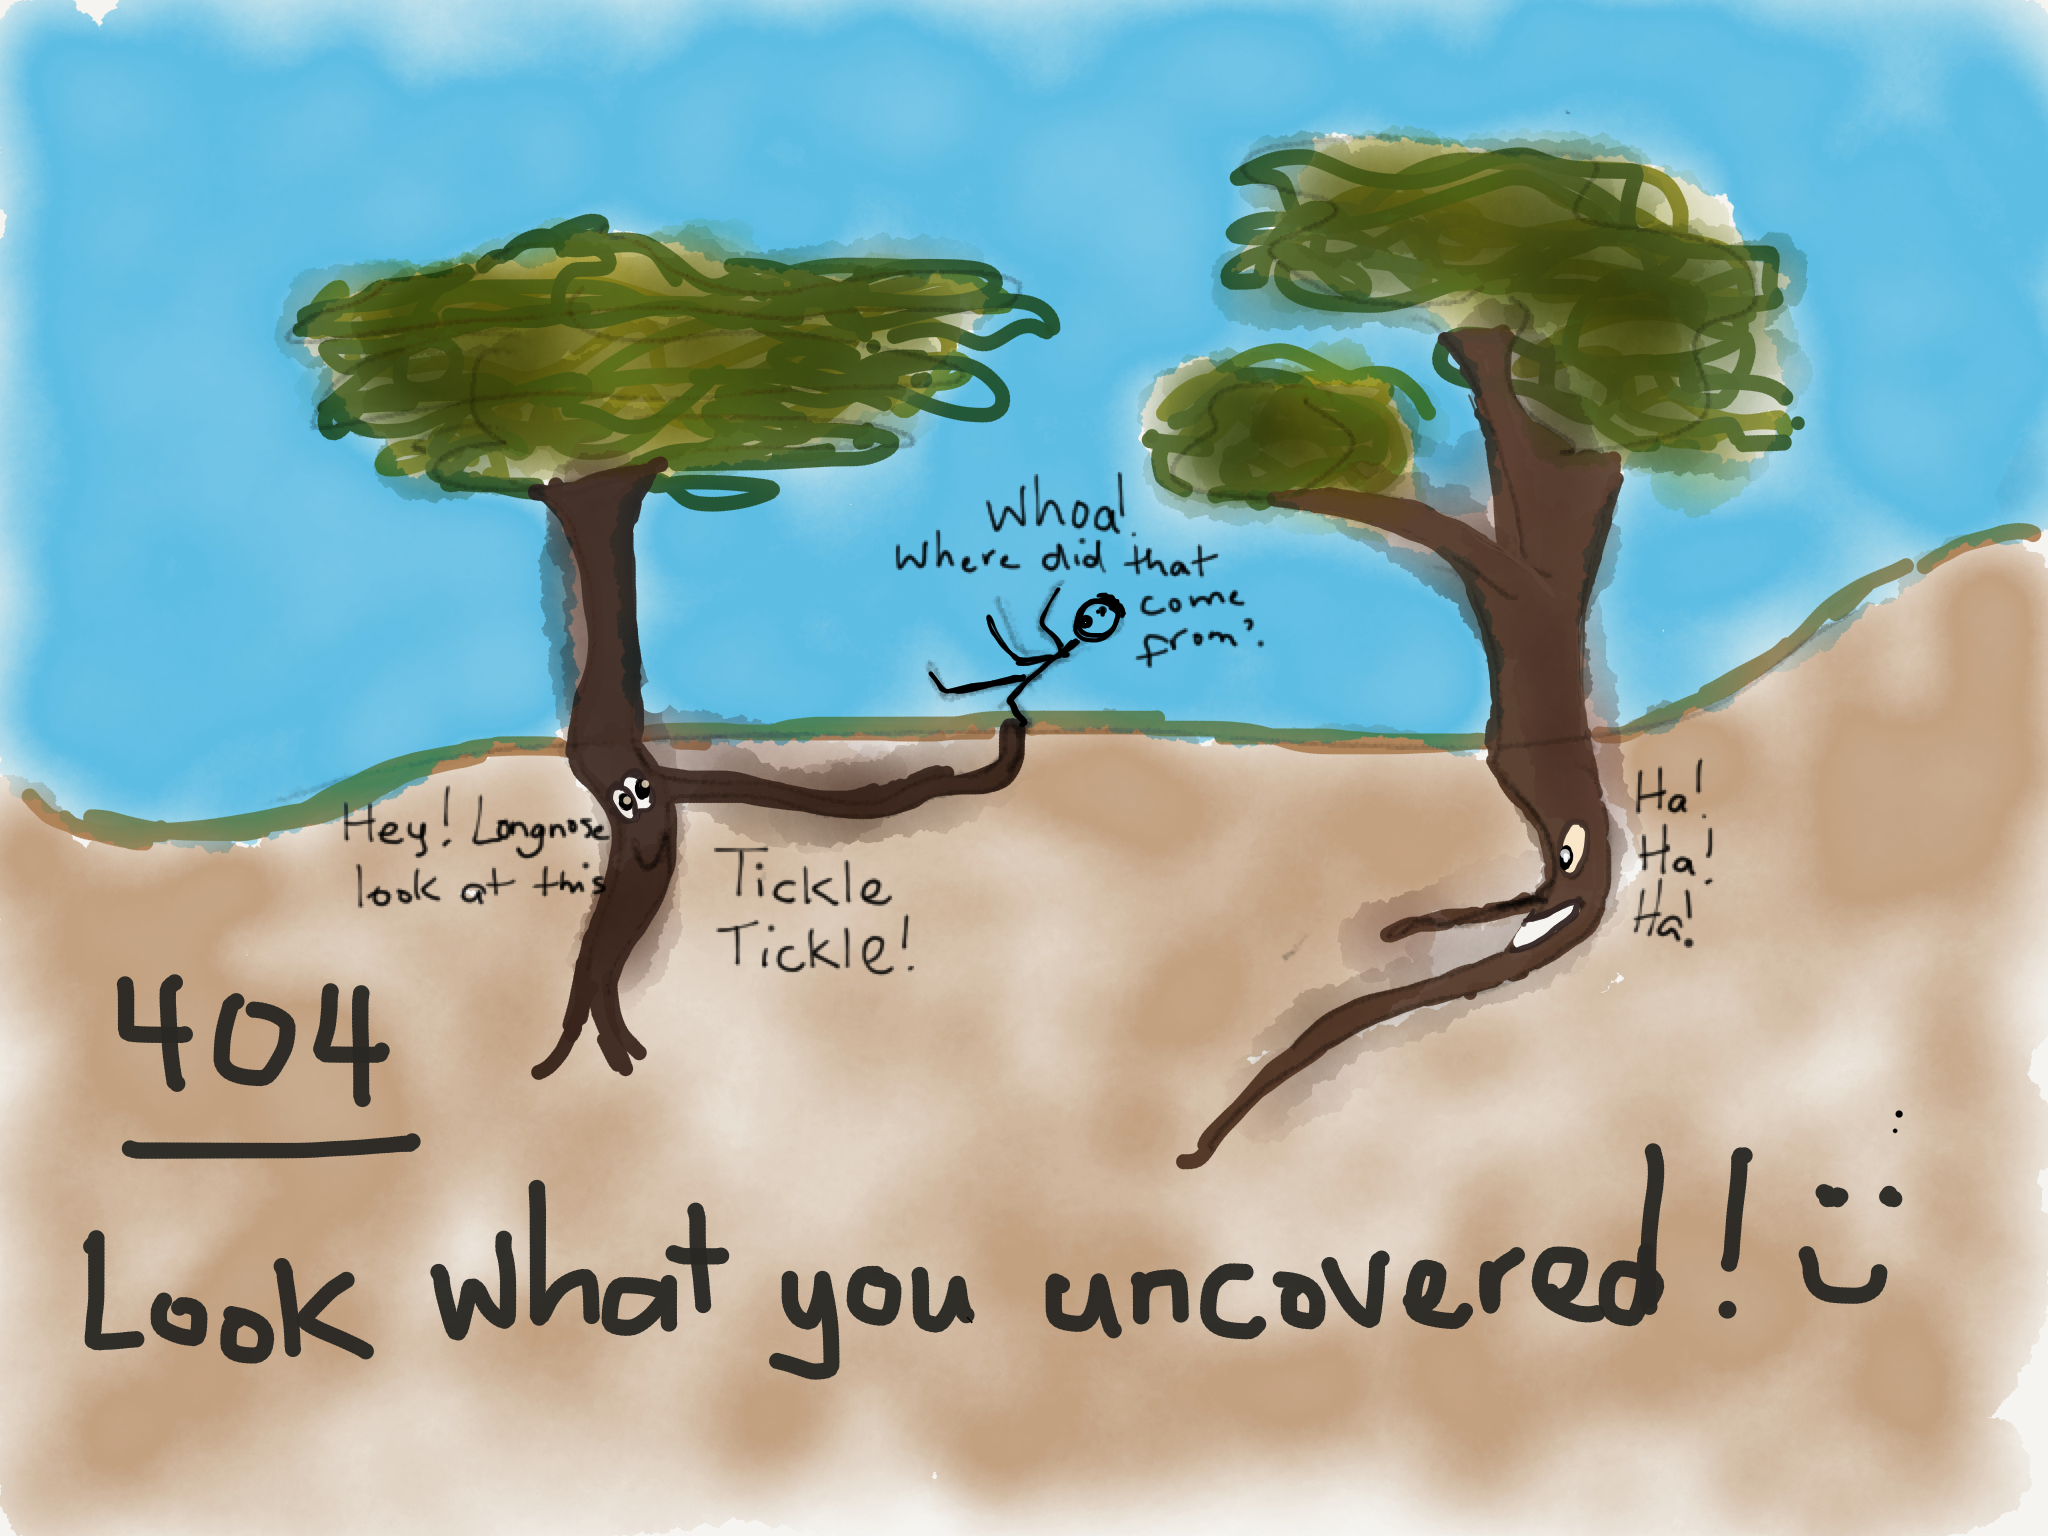 Whoa!
Where did that
come
from?
Hey! Longnose
look at this
Tickle
Tickle!
Ha!
Ha!
Ha!
404
Look what you uncovered!